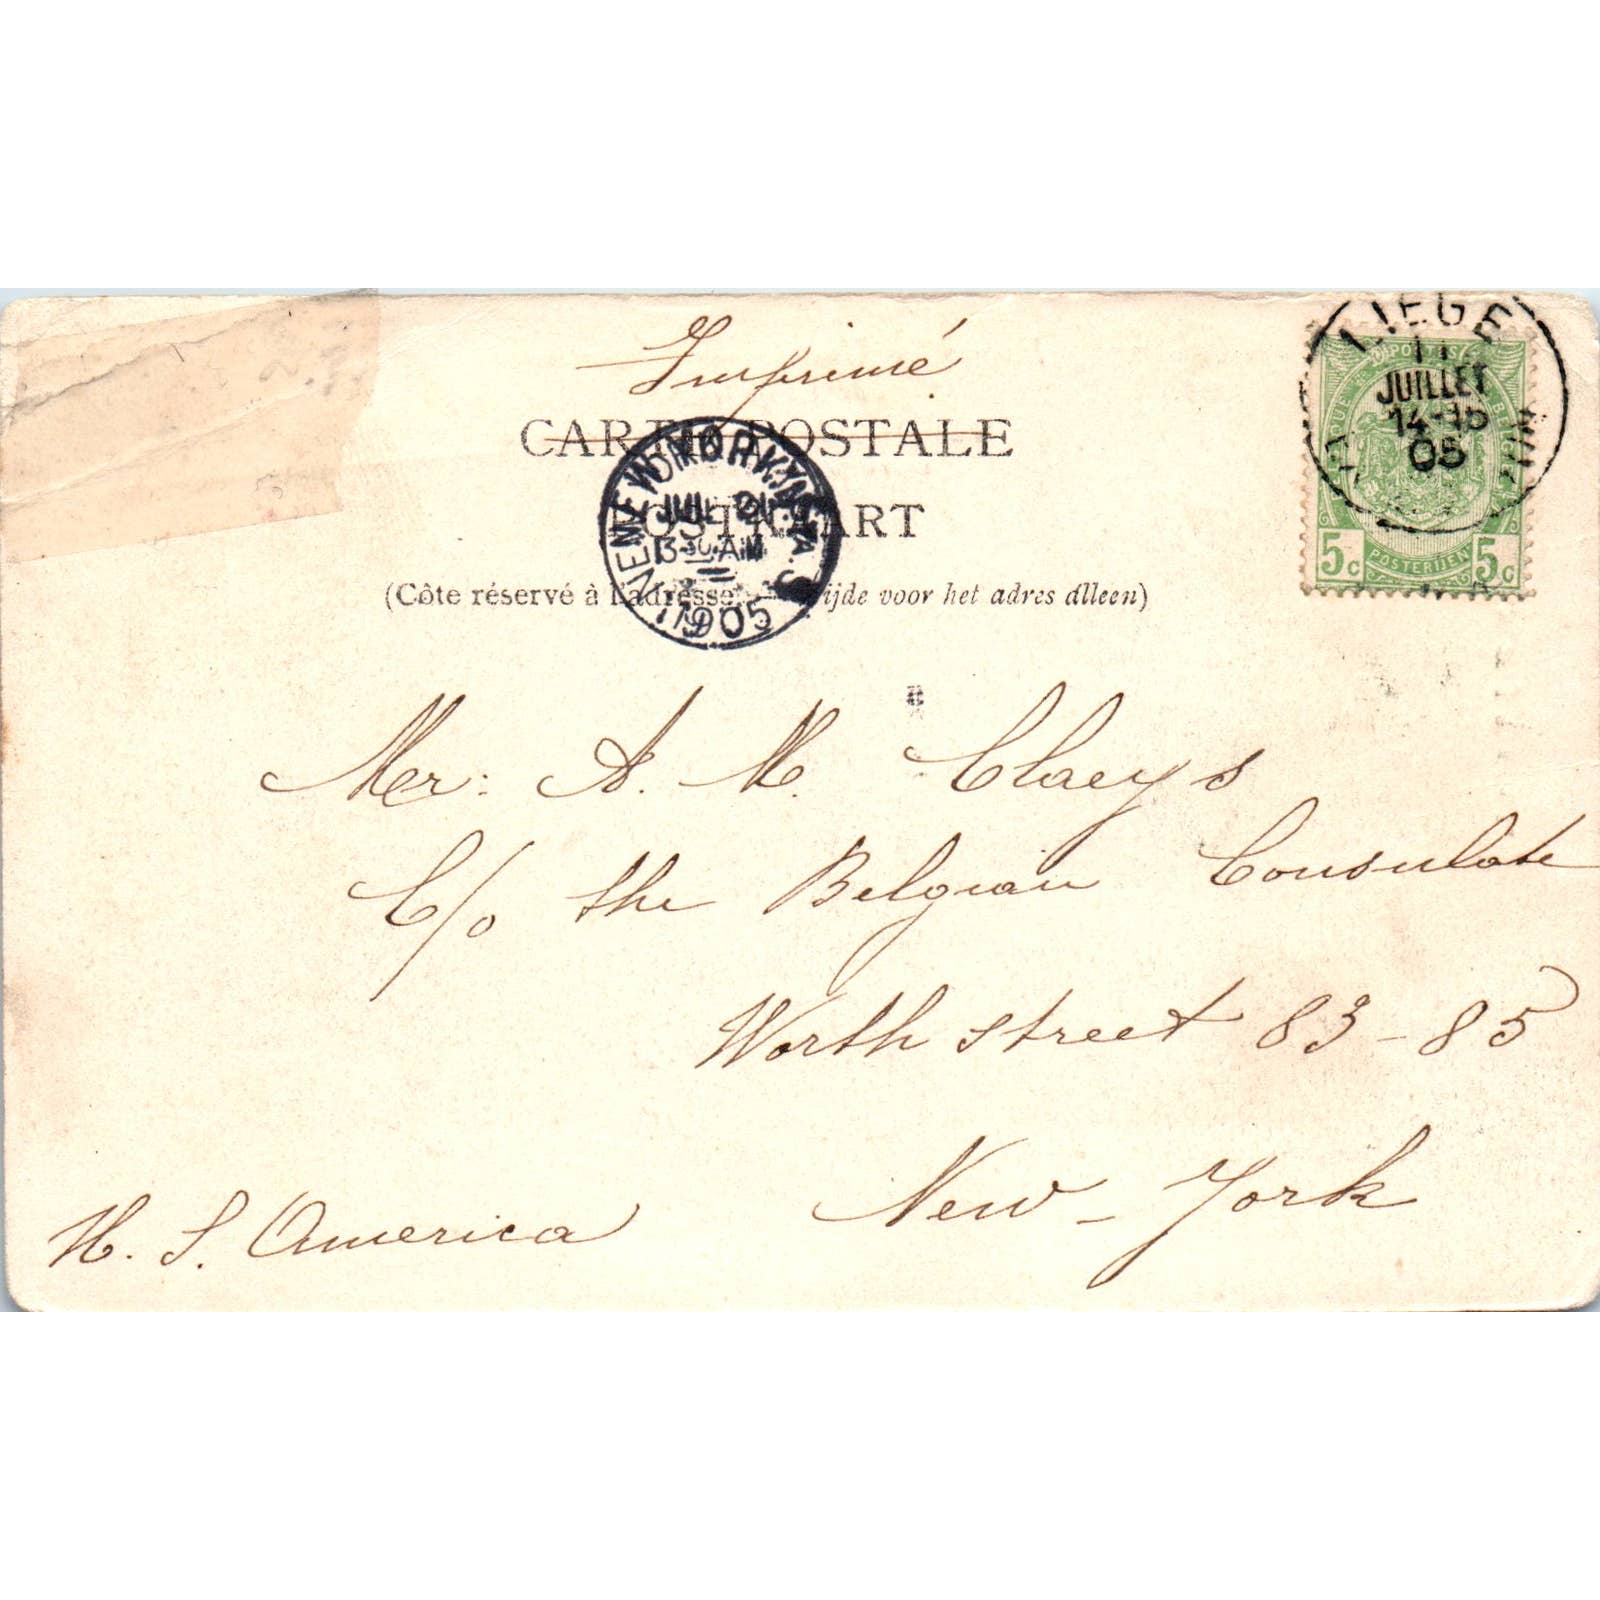 Imprimé
CARTE POSTALE
POSTKAART
(Côte réservé à l'adresse. Zijde voor het adres alleen)
LIEGE
11
JUILLET
14-15
05
POSTES
5c POSTERIJEN 5c
NEW YORK, N.Y.
JUL 21
330 AM
1905
Mer: A. M. Claeys
C/o the Belgian Consulate
Worth street 83-85
New-York
N. S. America